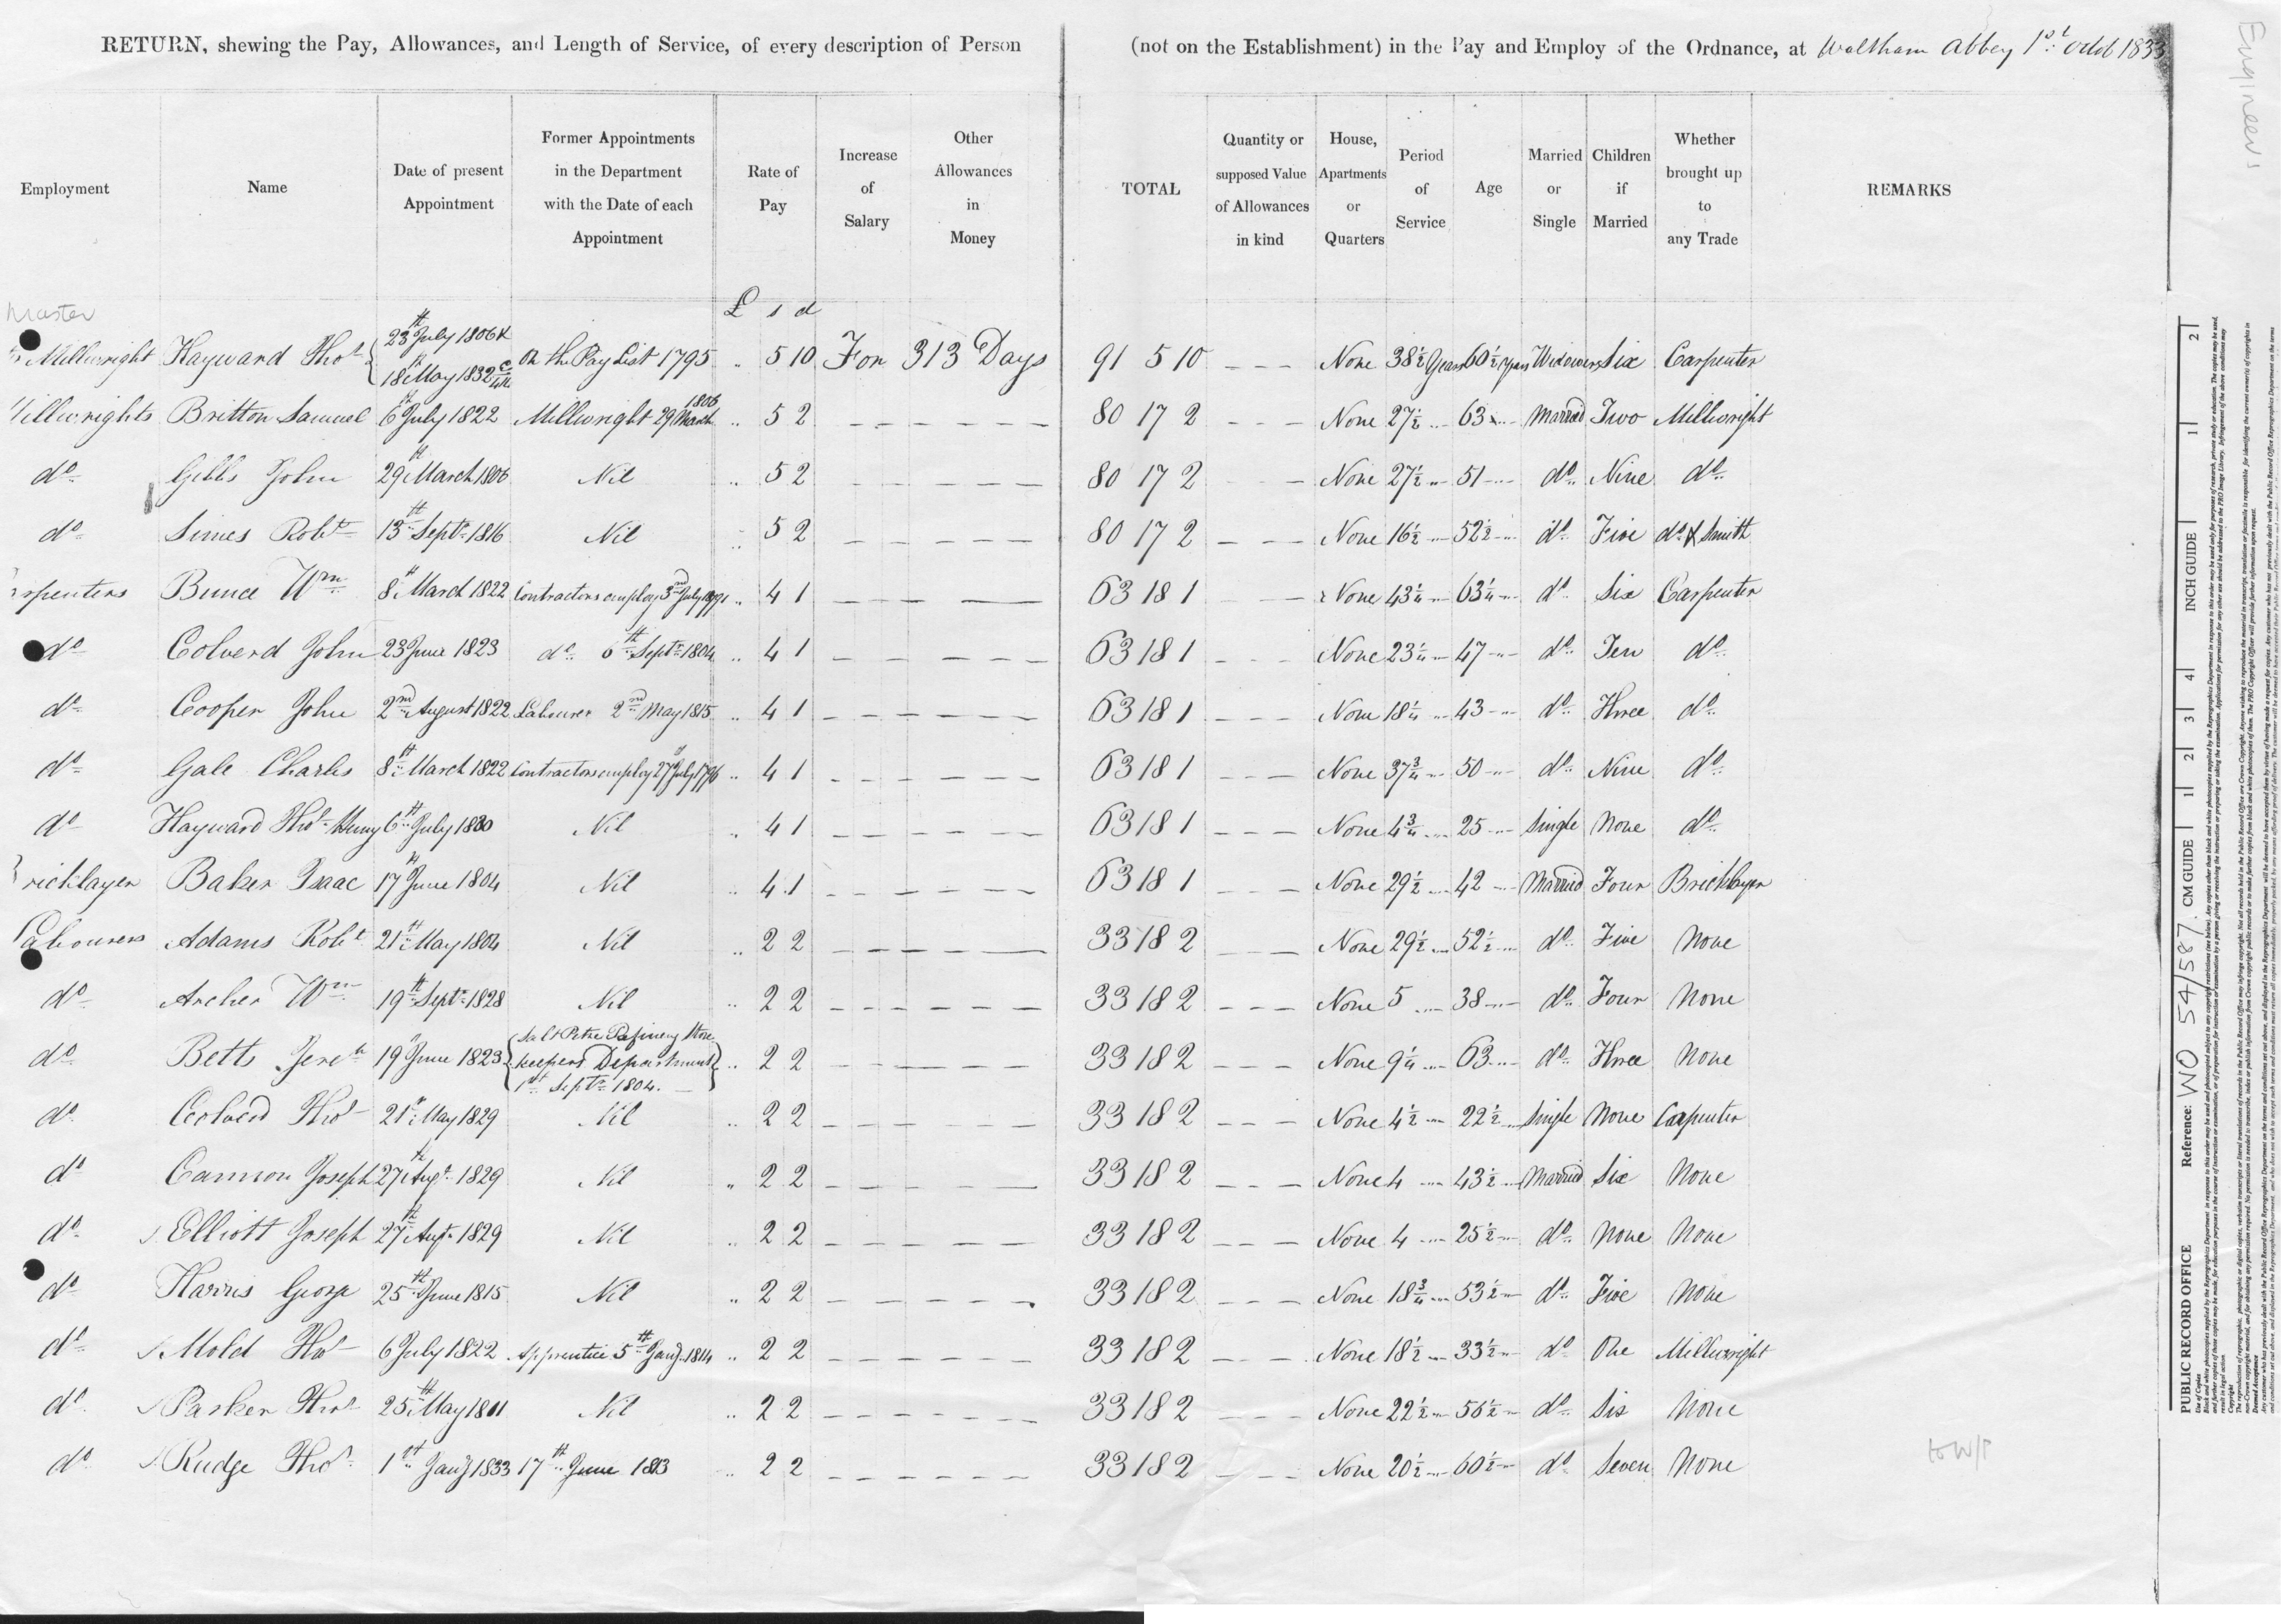 RETURN, shewing the Pay, Allowances, and Length of Service, of every description of Person (not on the Establishment) in the Pay and Employ of the Ordnance, at Waltham Abbey 1st Octob 1833
Engineers
Employment Name Date of present Appointment Former Appointments in the Department with the Date of each Appointment Rate of Pay Increase of Salary Other Allowances in Money TOTAL Quantity or supposed Value of Allowances in kind House, Apartments or Quarters Period of Service Age Married or Single Children if Married Whether brought up to any Trade REMARKS
£ s d
Master
Millwright Hayward Thos 23th July 1806 & 18th May 1832 On the Pay List 1795 .. 5 10 For 313 Days 91 5 10 - - - None 38½ Years 60½ Years Widower Six Carpenter
Millwrights Britton Samuel 6th July 1822 Millwright 29 March 1806 .. 5 2 - - - - - - 80 17 2 - - - None 27½ 63 Married Two Millwright
do Gibbs John 29th March 1806 Nil .. 5 2 - - - - - - 80 17 2 - - - None 27½ 51 do Nine do
do Simes Robt 13th Septr 1816 Nil .. 5 2 - - - - - - 80 17 2 - - - None 16½ 52½ do Five do & Smith
rpenters Bunce Wm 8th March 1822 Contractors employ 3rd July .. 4 1 - - - - 63 18 1 - - None 43¼ 63¼ do Six Carpenter
do Colverd John 23 June 1823 do 6th Septr 1804 .. 4 1 - - - - - - 63 18 1 - - - None 23¼ 47 do Ten do
do Cooper John 2nd August 1822 Labourer 2nd May 1815 .. 4 1 - - - - - - 63 18 1 - - - None 18¼ 43 do Three do
do Gale Charles 8th March 1822 Contractors employ 27th July 1796 .. 4 1 - - - - - - 63 18 1 - - - None 37¾ 50 do Nine do
do Hayward Thos Henry 6th July 1830 Nil .. 4 1 - - - - - - 63 18 1 - - - None 4¾ 25 Single None do
ricklayer Baker Isaac 17th June 1804 Nil .. 4 1 - - - - - - 63 18 1 - - - None 29½ 42 Married Four Bricklayer
Labourers Adams Robt 21th May 1804 Nil .. 2 2 - - - - - - 33 18 2 - - - None 29½ 52½ do Five None
do Archer Wm 19th Septr 1828 Nil .. 2 2 - - - - - - 33 18 2 - - - None 5 38 do Four None
do Betts Jereh 19th June 1823 Salt Petre Refinery Store keepers Department 1st Septr 1804. .. 2 2 - - - - - - 33 18 2 - - - None 9¼ 63 do Three None
do Colverd Thos 21st May 1829 Nil .. 2 2 - - - - - - 33 18 2 - - - None 4½ 22½ Single None Carpenter
do Cannon Joseph 27th Augt 1829 Nil .. 2 2 - - - - - - 33 18 2 - - - None 4 43½ Married Six None
do Elliott Joseph 27th Augt 1829 Nil .. 2 2 - - - - - - 33 18 2 - - - None 4 25½ do None None
do Harris George 25th June 1815 Nil .. 2 2 - - - - - - 33 18 2 - - - None 18¾ 53½ do Five None
do Mold Thos 6 July 1822 Apprentice 5th Jany 1814 .. 2 2 - - - - - - 33 18 2 - - - None 18½ 33½ do One Millwright
do Parker Thos 25th May 1811 Nil .. 2 2 - - - - - - 33 18 2 - - - None 22½ 56½ do Six None
do Rudge Thos 1st Jany 1833 17th June 1813 .. 2 2 - - - - - - 33 18 2 - - - None 20½ 60½ do Seven None
PUBLIC RECORD OFFICE Reference: WO 54/587 CM GUIDE 1 2 3 4 INCH GUIDE 1 2